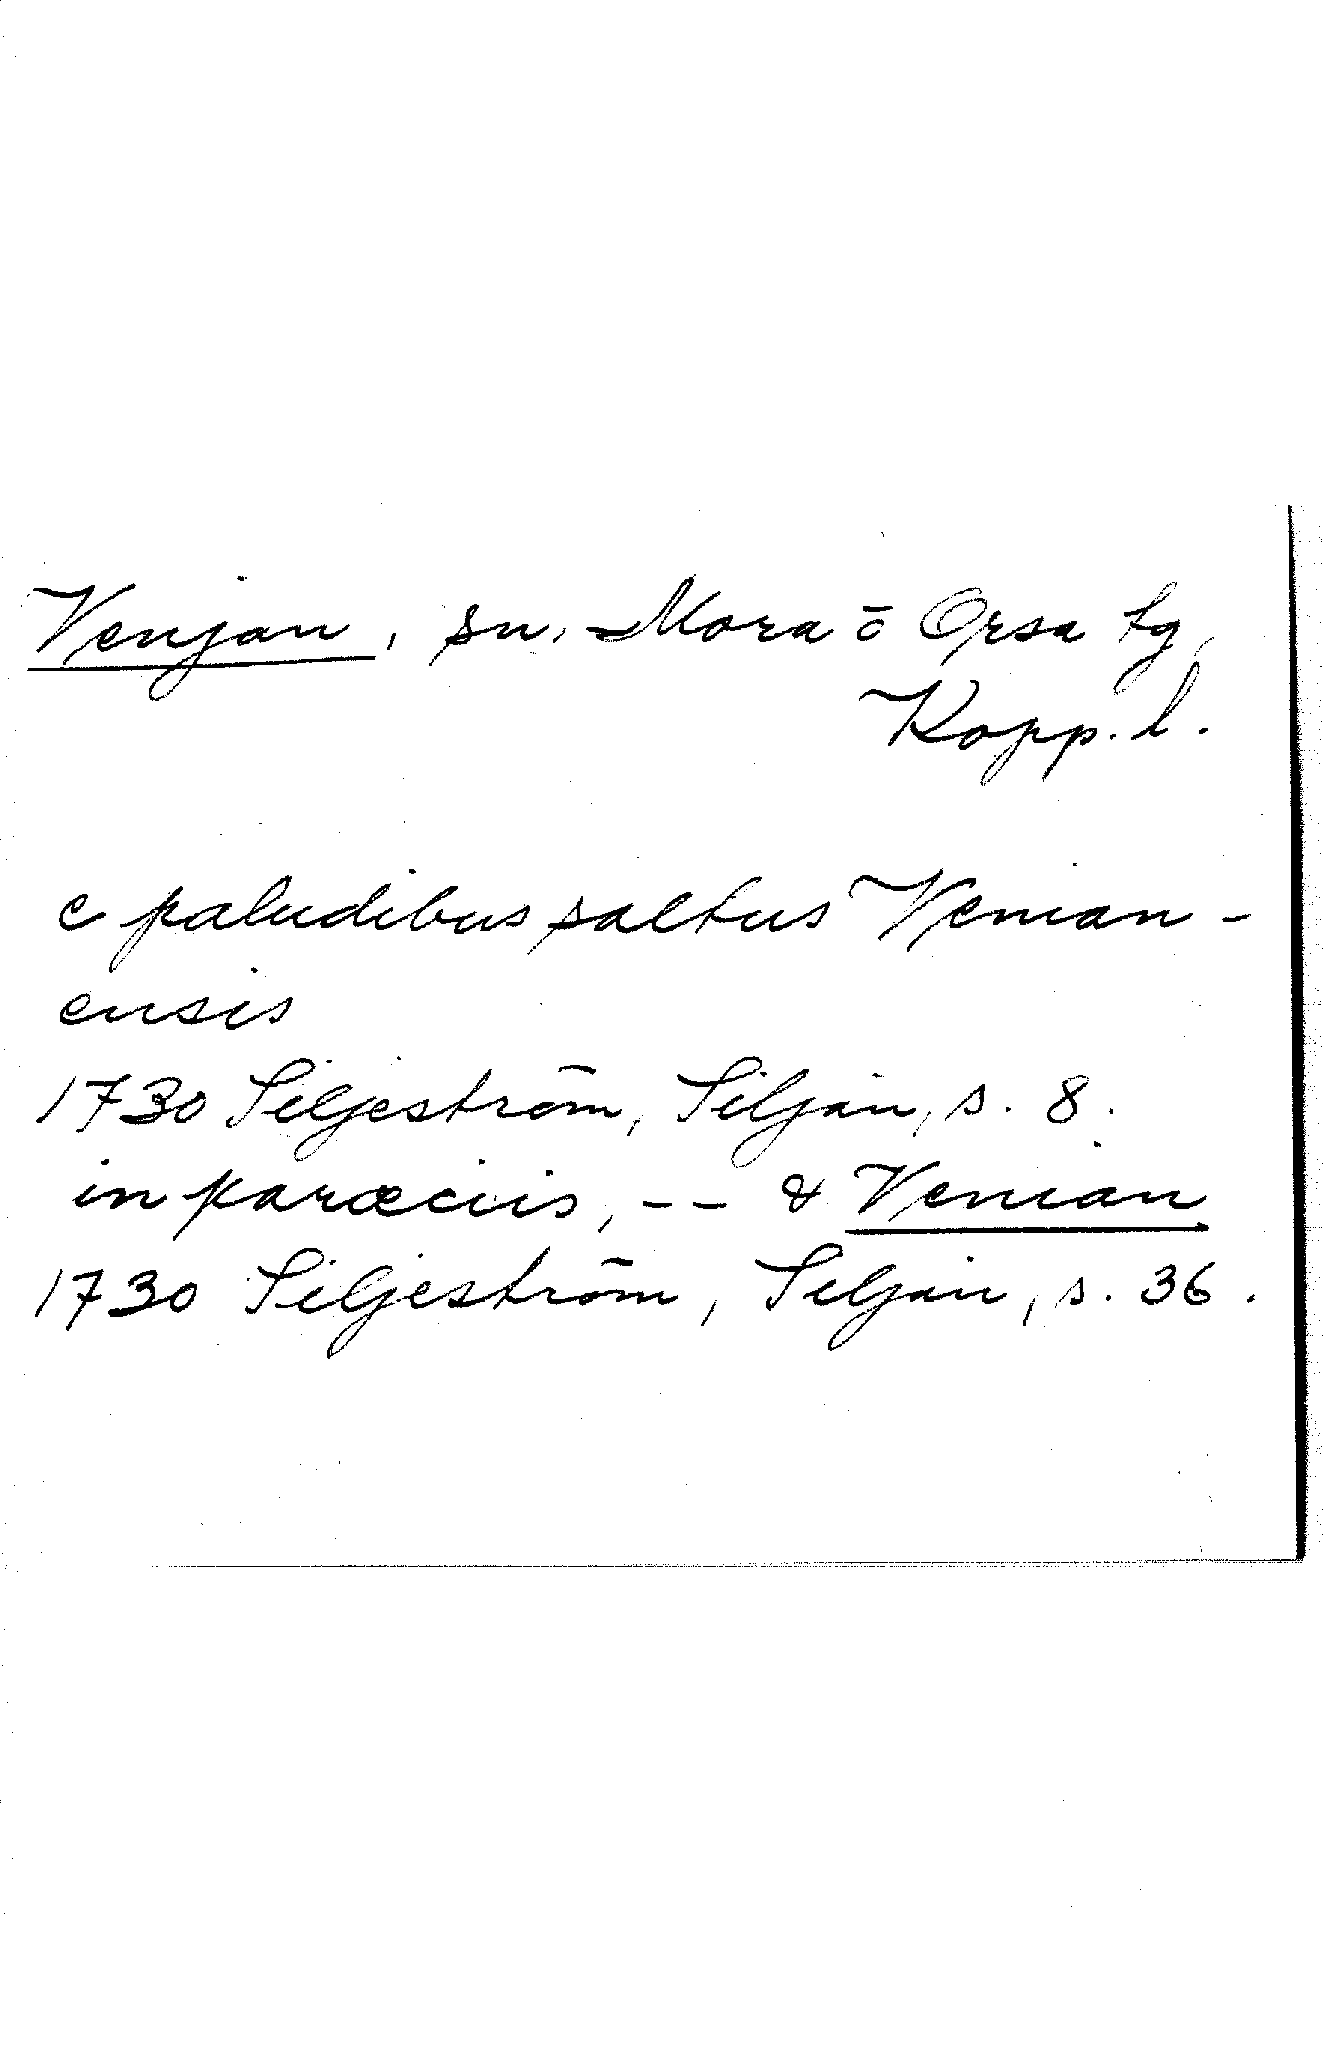 Venjan, sn, Mora ō Orsa tg,
Kopp. l.
e paludibus saltus Venian-
ensis
1730 Siljeström, Siljan, s. 8.
in parœciis, -- & Venian
1730 Siljeström, Siljan, s. 36.